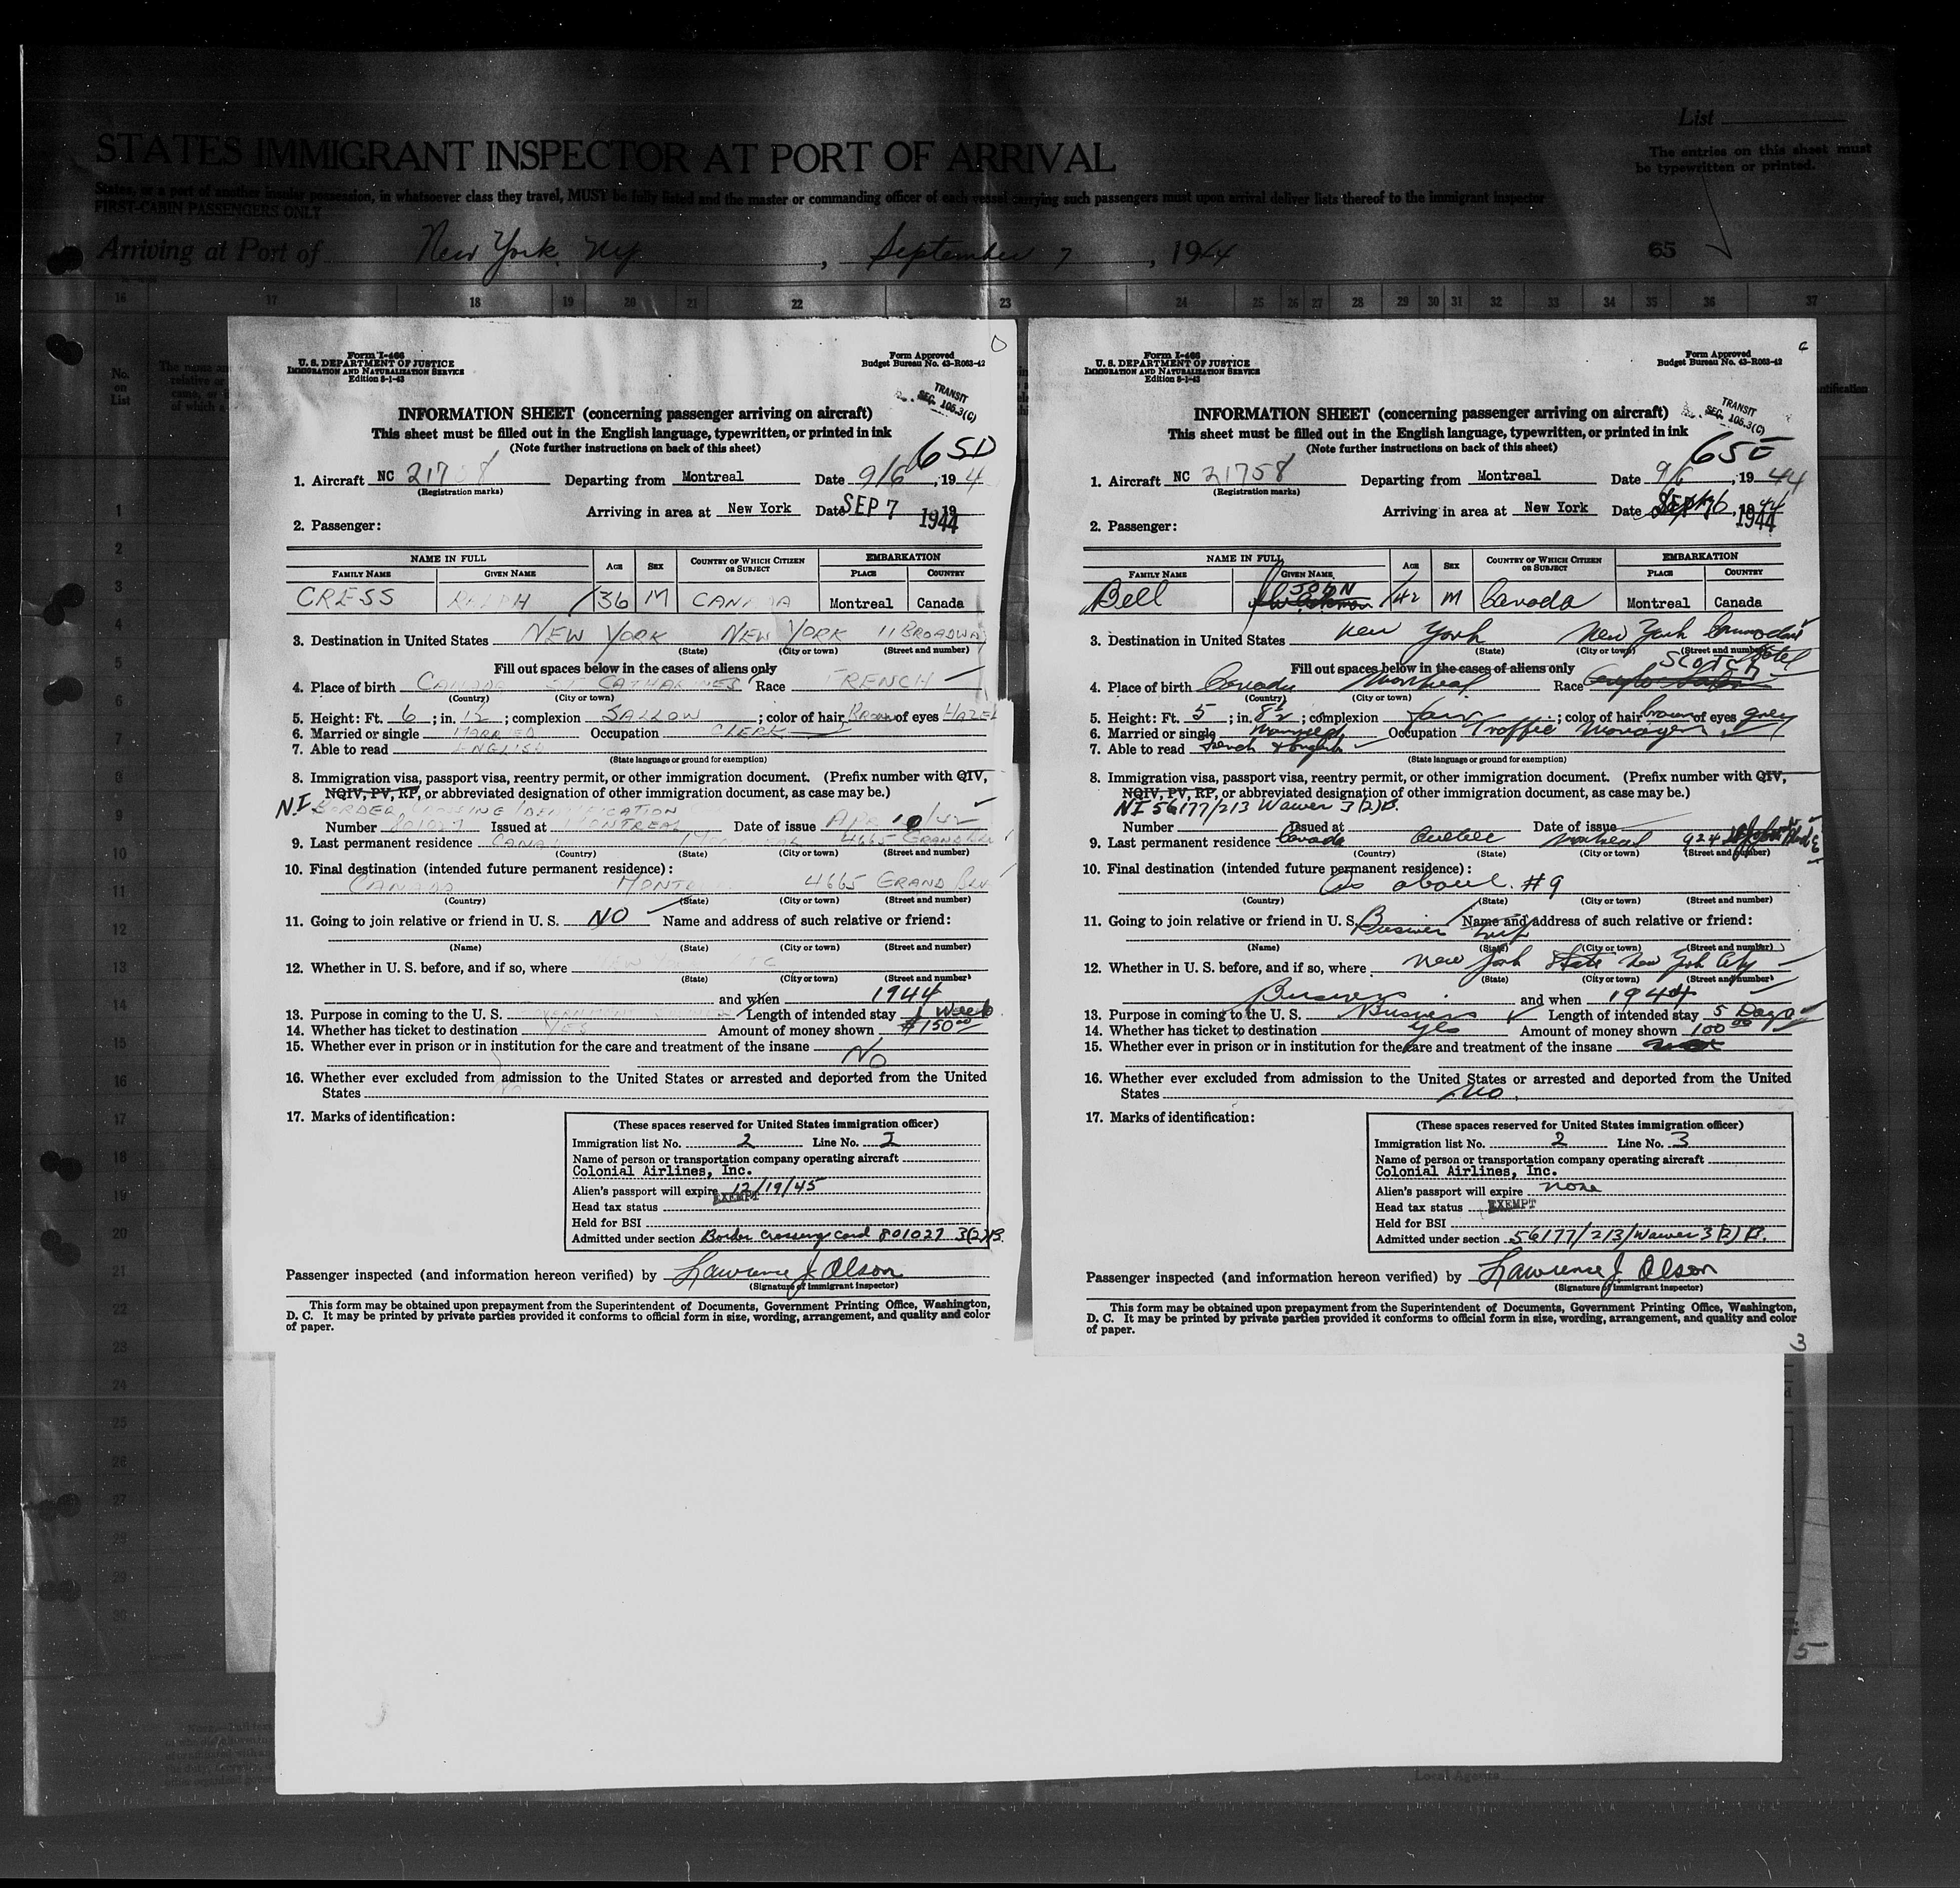 List
STATES IMMIGRANT INSPECTOR AT PORT OF ARRIVAL
The entries on this sheet must
be typewritten or printed.
States, or a port of another insular possession, in whatsoever class they travel, MUST be fully listed and the master or commanding officer of each vessel carrying such passengers must upon arrival deliver lists thereof to the immigrant inspector
FIRST-CABIN PASSENGERS ONLY
Arriving at Port of New York, Ny, September 7, 1944
65
16 17 18 19 20 21 22 23 24 25 26 27 28 29 30 31 32 33 34 35 36 37
No.
on
List
1
2
3
4
5
6
7
8
9
10
11
12
13
14
15
16
17
18
19
20
21
22
23
24
25
26
27
28
29
30
Form I-466
U. S. DEPARTMENT OF JUSTICE
IMMIGRATION AND NATURALIZATION SERVICE
Edition 8-1-43
Form Approved
Budget Bureau No. 43-R063-42
TRANSIT
SEC. 106.3(C)
INFORMATION SHEET (concerning passenger arriving on aircraft)
This sheet must be filled out in the English language, typewritten, or printed in ink
(Note further instructions on back of this sheet)
65D
1. Aircraft NC 217 8 Departing from Montreal Date 9/6, 194
(Registration marks)
Arriving in area at New York Date SEP 7 19
1944
2. Passenger:
NAME IN FULL AGE SEX COUNTRY OF WHICH CITIZEN OR SUBJECT EMBARKATION
FAMILY NAME GIVEN NAME PLACE COUNTRY
CRESS RALPH 36 M CANADA Montreal Canada
3. Destination in United States NEW YORK NEW YORK 11 BROADWAY
(State) (City or town) (Street and number)
Fill out spaces below in the cases of aliens only
4. Place of birth CANADA ST CATHARINES Race FRENCH
(Country) (City or town)
5. Height: Ft. 6; in. 1½; complexion SALLOW; color of hair Brown of eyes HAZEL
6. Married or single MARRIED Occupation CLERK
7. Able to read ENGLISH
(State language or ground for exemption)
8. Immigration visa, passport visa, reentry permit, or other immigration document. (Prefix number with QIV,
NQIV, PV, RP, or abbreviated designation of other immigration document, as case may be.)
NI BORDER CROSSING IDENTIFICATION
Number 801027 Issued at MONTREAL Date of issue APR
9. Last permanent residence CANADA 4665 GRAND
(Country) (State) (City or town) (Street and number)
10. Final destination (intended future permanent residence):
CANADA 4665 GRAND BLV
(Country) (State) (City or town) (Street and number)
11. Going to join relative or friend in U. S. NO Name and address of such relative or friend:
(Name) (State) (City or town) (Street and number)
12. Whether in U. S. before, and if so, where
(State) (City or town) (Street and number)
and when 1944
13. Purpose in coming to the U. S. GOVERNMENT Length of intended stay 1 Week
14. Whether has ticket to destination YES Amount of money shown $150.00
15. Whether ever in prison or in institution for the care and treatment of the insane No
16. Whether ever excluded from admission to the United States or arrested and deported from the United
States No
17. Marks of identification:
(These spaces reserved for United States immigration officer)
Immigration list No. 2 Line No. 2
Name of person or transportation company operating aircraft
Colonial Airlines, Inc.
Alien's passport will expire 12/19/45
Head tax status EXEMPT
Held for BSI
Admitted under section Border crossing card 801027 3(2)B.
Passenger inspected (and information hereon verified) by Lawrence J. Olson
(Signature of immigrant inspector)
This form may be obtained upon prepayment from the Superintendent of Documents, Government Printing Office, Washington,
D. C. It may be printed by private parties provided it conforms to official form in size, wording, arrangement, and quality and color
of paper.
Form I-466
U. S. DEPARTMENT OF JUSTICE
IMMIGRATION AND NATURALIZATION SERVICE
Edition 8-1-43
Form Approved
Budget Bureau No. 43-R063-42
TRANSIT
SEC. 106.3(C)
INFORMATION SHEET (concerning passenger arriving on aircraft)
This sheet must be filled out in the English language, typewritten, or printed in ink
(Note further instructions on back of this sheet)
65E
1. Aircraft NC 21758 Departing from Montreal Date 9/6, 1944
(Registration marks)
Arriving in area at New York Date SEP , 1944
1944
2. Passenger:
NAME IN FULL AGE SEX COUNTRY OF WHICH CITIZEN OR SUBJECT EMBARKATION
FAMILY NAME GIVEN NAME PLACE COUNTRY
Bell JOHN 42 M Canada Montreal Canada
3. Destination in United States New York New York Commodore Hotel
(State) (City or town) (Street and number)
Fill out spaces below in the cases of aliens only
4. Place of birth Canada Montreal Race SCOTCH
(Country) (City or town)
5. Height: Ft. 5; in. 8½; complexion fair; color of hair brown of eyes grey
6. Married or single Married Occupation Traffic Manager
7. Able to read French & English
(State language or ground for exemption)
8. Immigration visa, passport visa, reentry permit, or other immigration document. (Prefix number with QIV,
NQIV, PV, RP, or abbreviated designation of other immigration document, as case may be.)
NI 56177/213 Waiver 3(2)B.
Number Issued at Date of issue
9. Last permanent residence Canada Quebec Montreal 924
(Country) (State) (City or town) (Street and number)
10. Final destination (intended future permanent residence):
As above #9
(Country) (State) (City or town) (Street and number)
11. Going to join relative or friend in U. S. Business trip Name and address of such relative or friend:
(Name) (State) (City or town) (Street and number)
12. Whether in U. S. before, and if so, where New York State New York City
(State) (City or town) (Street and number)
Business and when 1944
13. Purpose in coming to the U. S. Business Length of intended stay 5 Days
14. Whether has ticket to destination yes Amount of money shown 100.00
15. Whether ever in prison or in institution for the care and treatment of the insane
16. Whether ever excluded from admission to the United States or arrested and deported from the United
States No.
17. Marks of identification:
(These spaces reserved for United States immigration officer)
Immigration list No. 2 Line No. 3
Name of person or transportation company operating aircraft
Colonial Airlines, Inc.
Alien's passport will expire none
Head tax status EXEMPT
Held for BSI
Admitted under section 56177/213/Waiver 3(2)B.
Passenger inspected (and information hereon verified) by Lawrence J. Olson
(Signature of immigrant inspector)
This form may be obtained upon prepayment from the Superintendent of Documents, Government Printing Office, Washington,
D. C. It may be printed by private parties provided it conforms to official form in size, wording, arrangement, and quality and color
of paper.
3
5
Local Agents